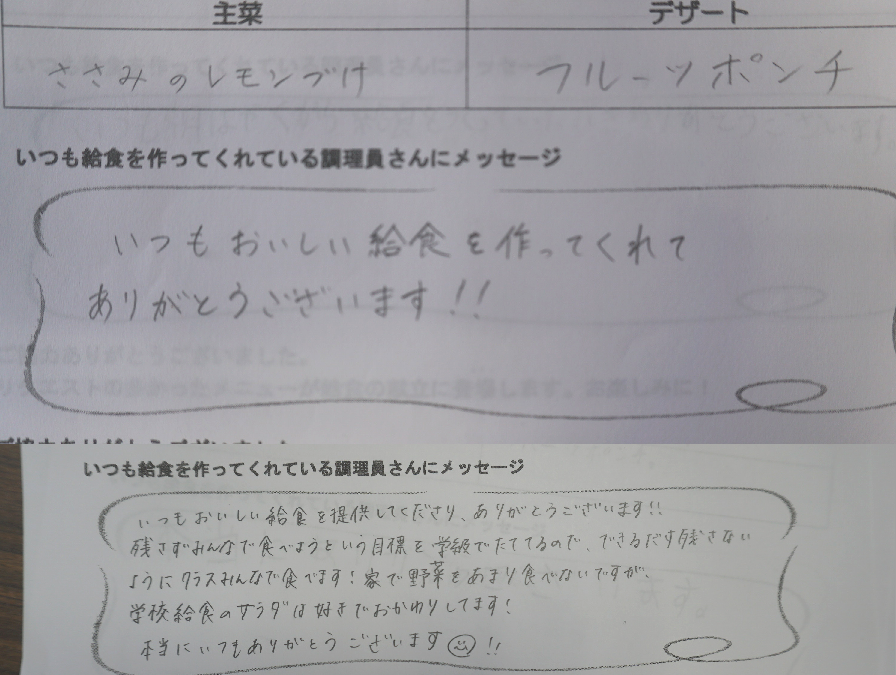 主菜 デザート
ささみのレモンづけ フルーツポンチ
いつも給食を作ってくれている調理員さんにメッセージ
いつもおいしい給食を作ってくれて
ありがとうございます!!
ご協力ありがとうございました。
リクエストの多かったメニューが給食の献立に登場します。お楽しみに!
いつも給食を作ってくれている調理員さんにメッセージ
いつもおいしい給食を提供してくださり、ありがとうございます!!
残さずみんなで食べようという目標を学級でたててるので、できるだけ残さない
ようにクラスみんなで食べてます!家で野菜をあまり食べないですが、
学校給食のサラダは好きでおかわりしてます!
本当にいつもありがとうございます!!